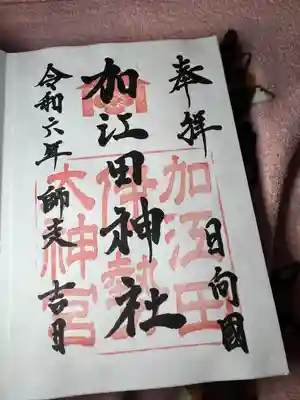 奉拝
日向國
加江田神社
令和六年師走吉日
加江田
伊勢
大神宮